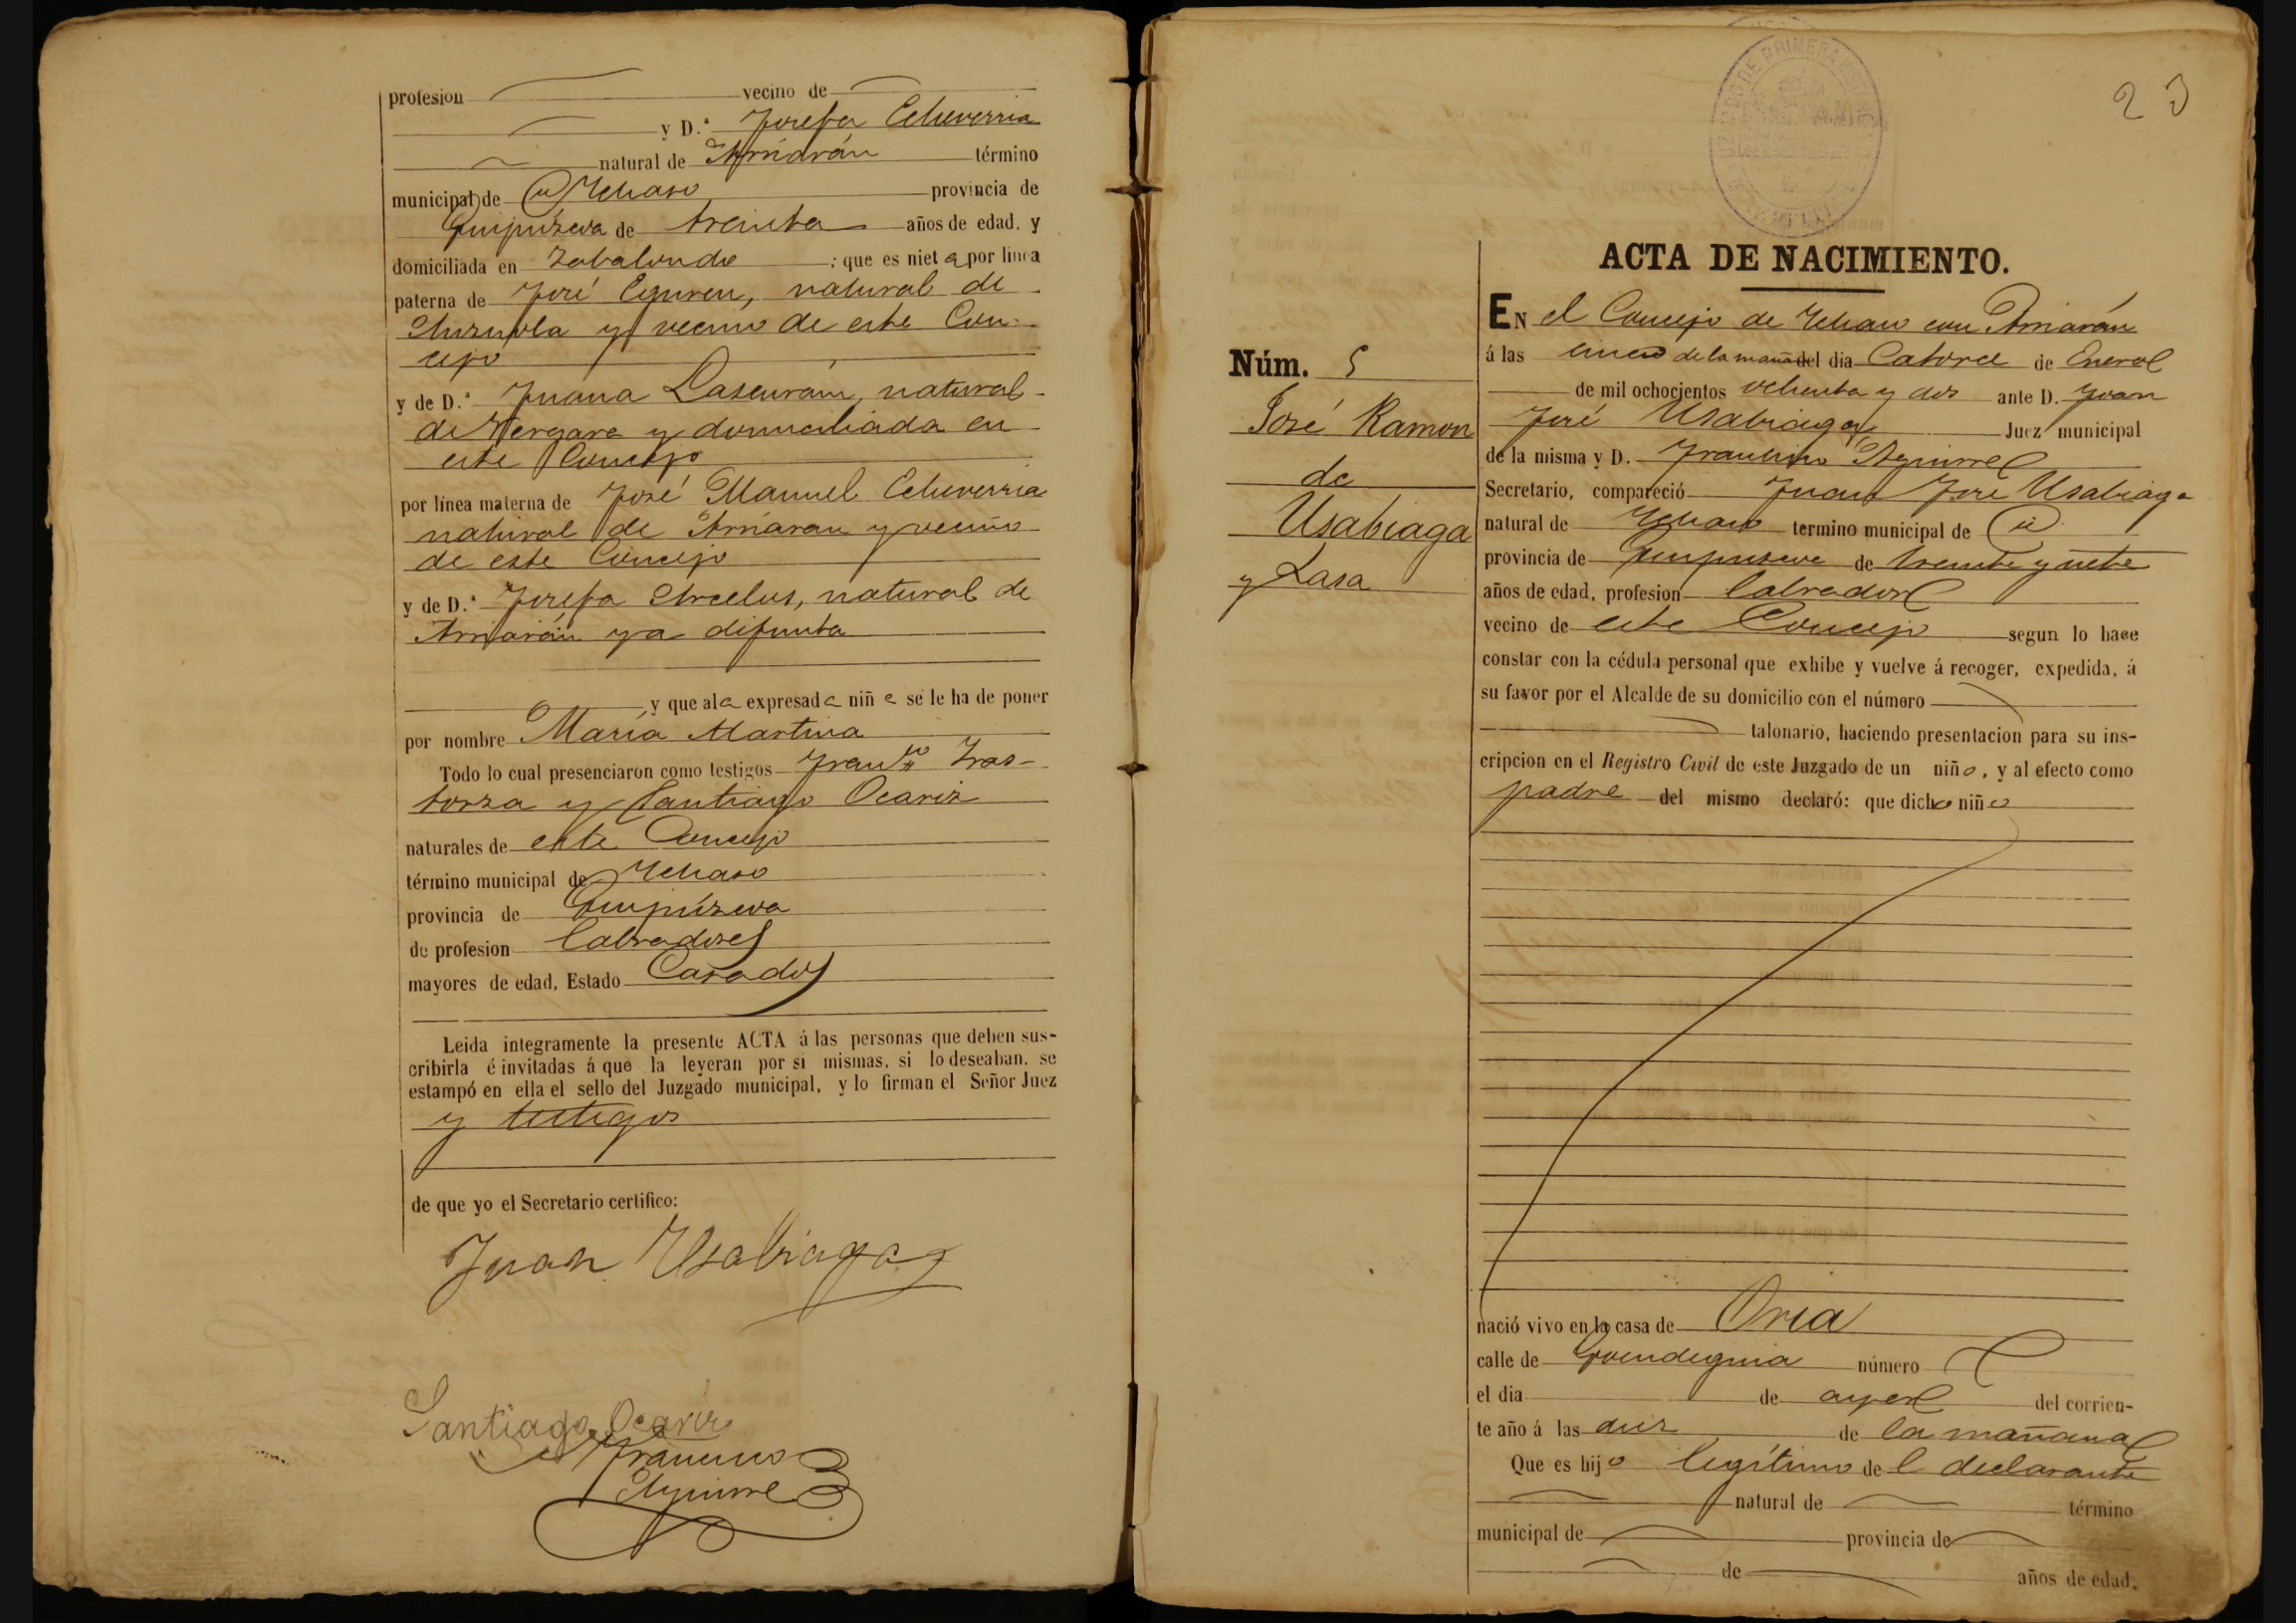 profesion vecino de
y D.ª Josefa Echeverria
natural de Arriarán término
municipal de id Ychaso provincia de
Guipúzcoa de treinta años de edad, y
domiciliada en Zabalondo ; que es nieta por línea
paterna de José Eguren, natural de
Anzuola y vecino de este Con-
cejo
y de D.ª Juana Lascurain, natural
de Vergara y domiciliada en
este Concejo
por línea materna de José Manuel Echeverria
natural de Arriaran y vecino
de este Concejo
y de D.ª Josefa Arcelus, natural de
Arriarán ya difunta
y que a la expresada niña se le ha de poner
por nombre María Martina
Todo lo cual presenciaron como testigos Fran.co Iras-
torza y Santiago Ocariz
naturales de este Concejo
término municipal de Ychaso
provincia de Guipúzcoa
de profesion labradores
mayores de edad, Estado Casados
Leida integramente la presente ACTA á las personas que deben sus-
cribirla é invitadas á que la leyeran por si mismas, si lo deseaban, se
estampó en ella el sello del Juzgado municipal, y lo firman el Señor Juez
y testigos
de que yo el Secretario certifico:
Juan Usabiaga
Santiago Ocariz
Francisco
Aguirre
23
JUZGADO DE PRIMERA
ACTA DE NACIMIENTO.
Núm. 5
José Ramon
de
Usabiaga
y Lasa
EN el Concejo de Ychaso con Arriarán
á las cinco de la maña del dia Catorce de Enero
de mil ochocientos ochenta y dos ante D. Juan
José Usabiaga Juez municipal
de la misma y D. Francisco Aguirre
Secretario, compareció Juan José Usabiaga
natural de Ychaso termino municipal de id
provincia de Guipuzcoa de treinta y siete
años de edad, profesion labrador
vecino de este Concejo segun lo hace
constar con la cédula personal que exhibe y vuelve á recoger, expedida, á
su favor por el Alcalde de su domicilio con el número
talonario, haciendo presentacion para su ins-
cripcion en el Registro Civil de este Juzgado de un niño, y al efecto como
padre del mismo declaró: que dicho niño
nació vivo en la casa de Oria
calle de Goendeguia número
el dia de ayer del corrien-
te año á las diez de la mañana
Que es hijo legítimo de l declarante
natural de término
municipal de provincia de
de años de edad,